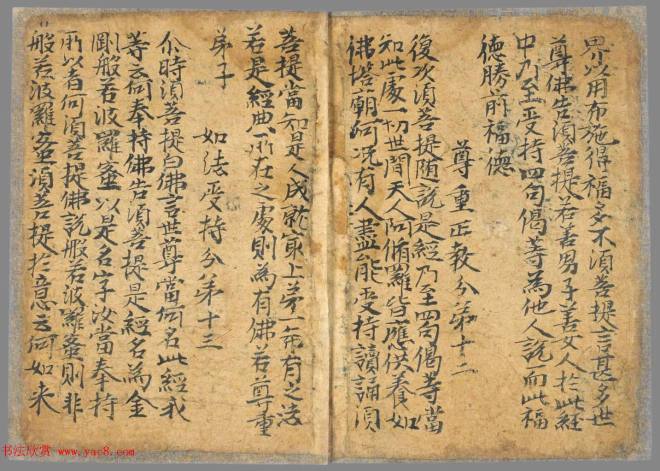 界以用布施得福多不須菩提言甚多世
尊佛告須菩提若善男子善女人於此經
中乃至受持四句偈等為他人說而此福
德勝前福德
尊重正教分第十二
復次須菩提隨說是經乃至四句偈等當
知此處一切世間天人阿脩羅皆應供養如
佛塔廟何況有人盡能受持讀誦須
菩提當知是人成就最上第一希有之法
若是經典所在之處則為有佛若尊重
弟子 如法受持分第十三
尒時須菩提白佛言世尊當何名此經我
等云何奉持佛告須菩提是經名為金
剛般若波羅蜜以是名字汝當奉持
所以者何須菩提佛說般若波羅蜜則非
般若波羅蜜須菩提於意云何如來
书法欣赏 www.yac8.com